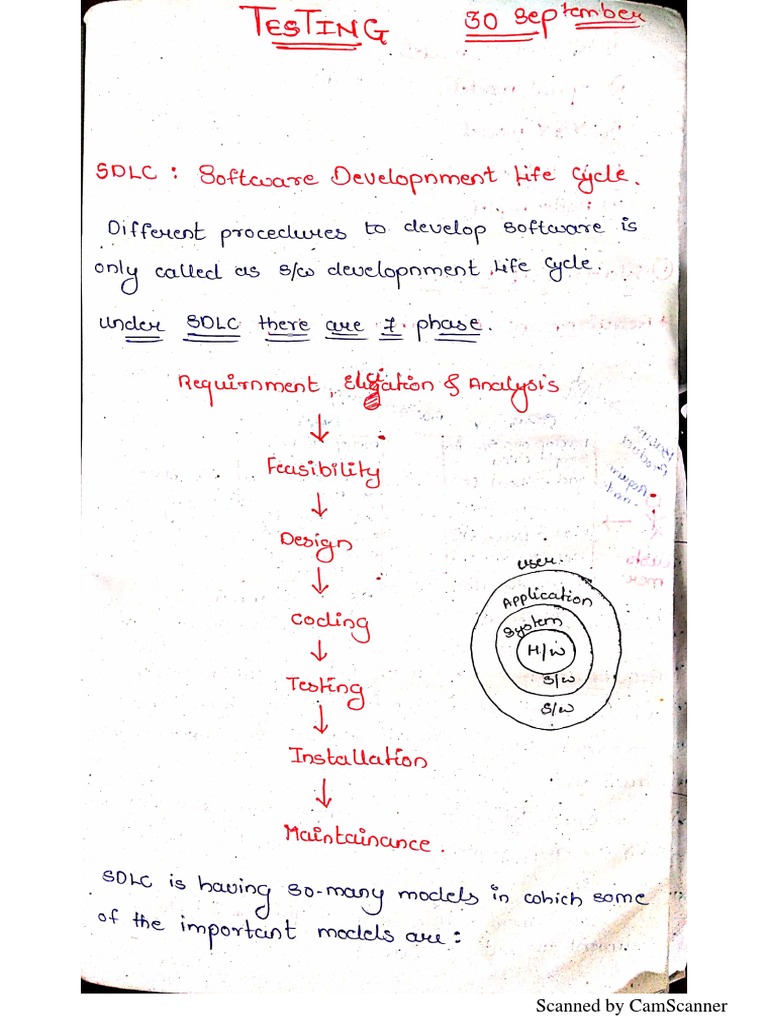 TESTING 30 September
SDLC : Software Developnment Life Cycle.
Different procedures to develop software is
only called as s/w developnment Life Cycle.
under SDLC there are 7 phase.
Requirnment, Elication & Analysis
↓
Feasibility
↓
Design
↓
Coding
↓
Testing
↓
Installation
↓
Maintainance.
user
Application
System
H/W
S/W
S/W
SDLC is having so-many models in which some
of the important models are :
Scanned by CamScanner